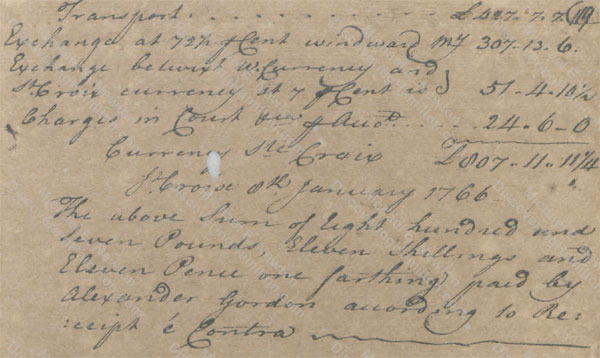 Transport . . . . . . . . £424.-7.- 119
Exchange at 72½ ⅌ Cent windward My 307-13-6.
Exchange betwixt W. Currency and
St Croix currency at 7 ⅌ Cent is } 51-4-10½
Charges in Court &ca ⅌ Accot. . . . . . 24-6-0
Currency Ste Croix £807-11-11¼
St Croix 8th January 1766
The above Sum of Eight hundred and
Seven Pounds, Eleven Shillings and
Eleven Pence one farthing paid by
Alexander Gordon according to Re:
:ceipt é Contra